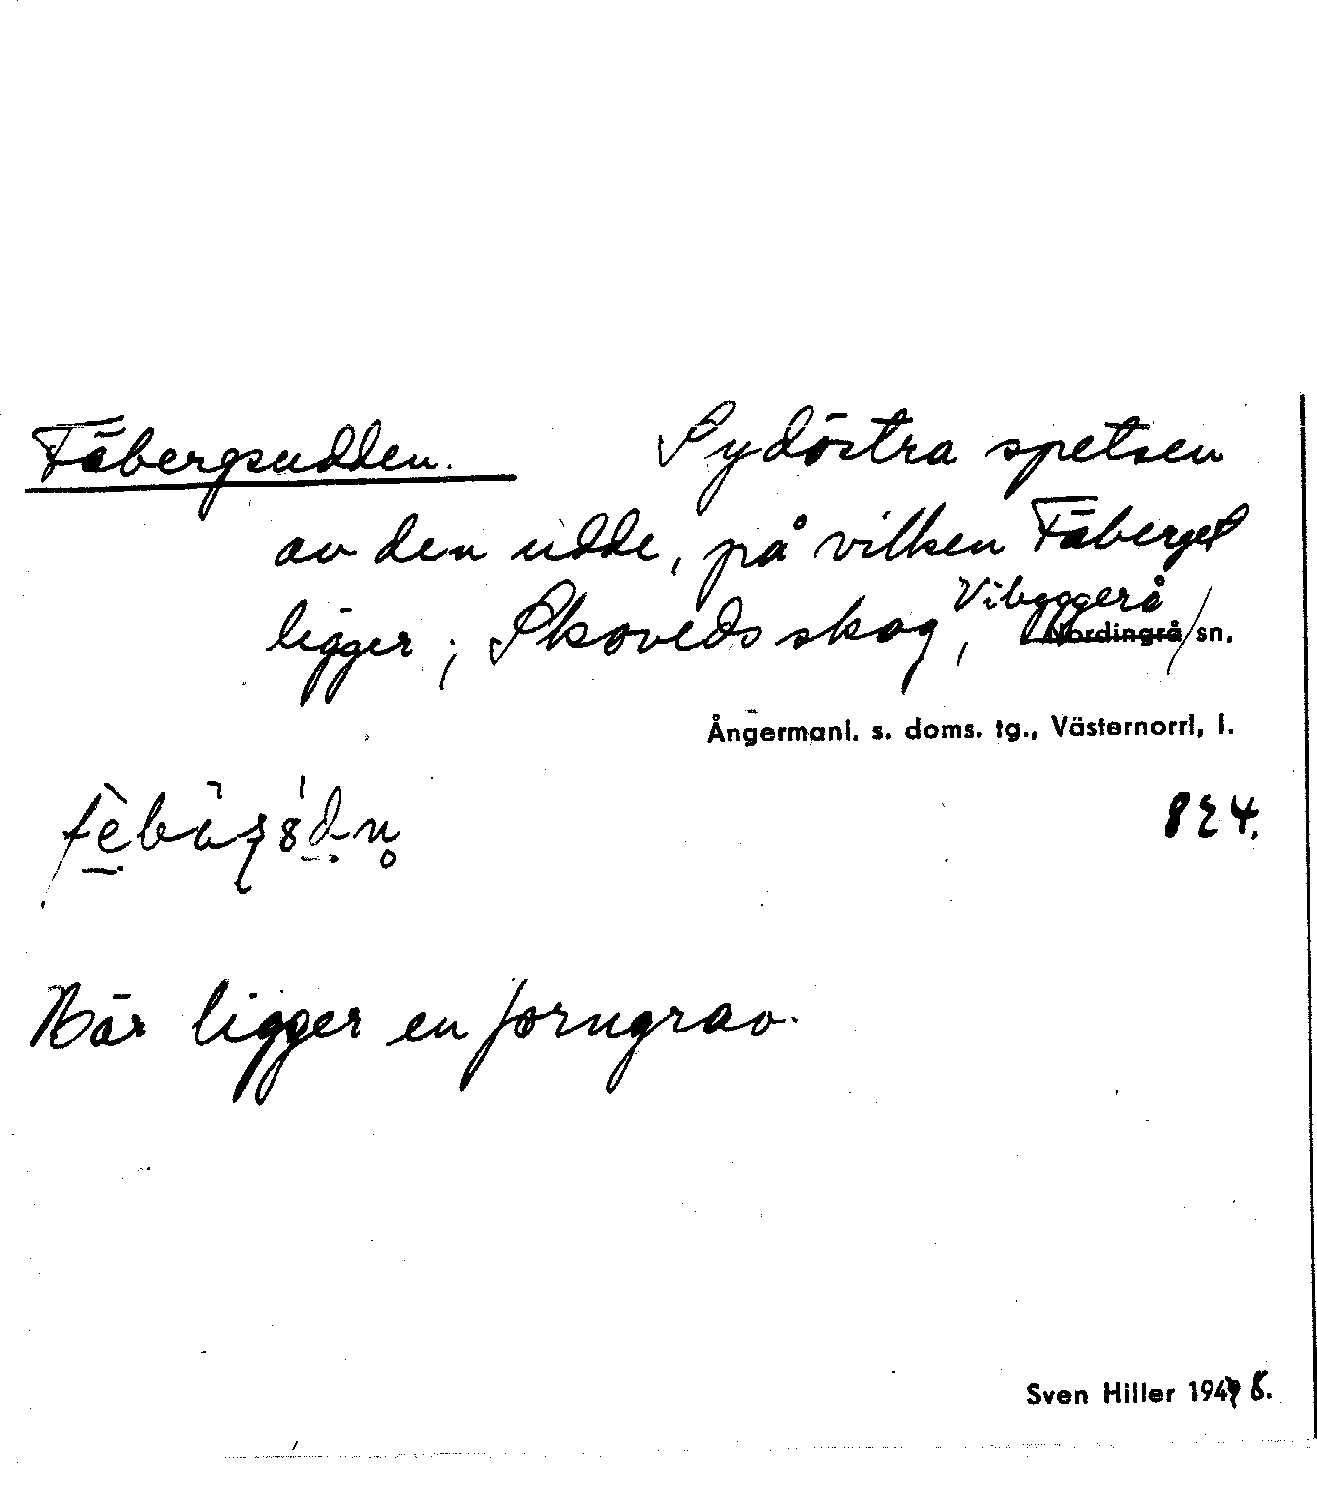 Fäbergsudden. Sydöstra spetsen
av den udde, på vilken Fäberget
ligger; Skoveds skog, Vibyggerå
Nordingrå sn.
Ångermanl. s. doms. tg., Västernorrl. l.
824.
Här ligger en forngrav.
Sven Hiller 1948.